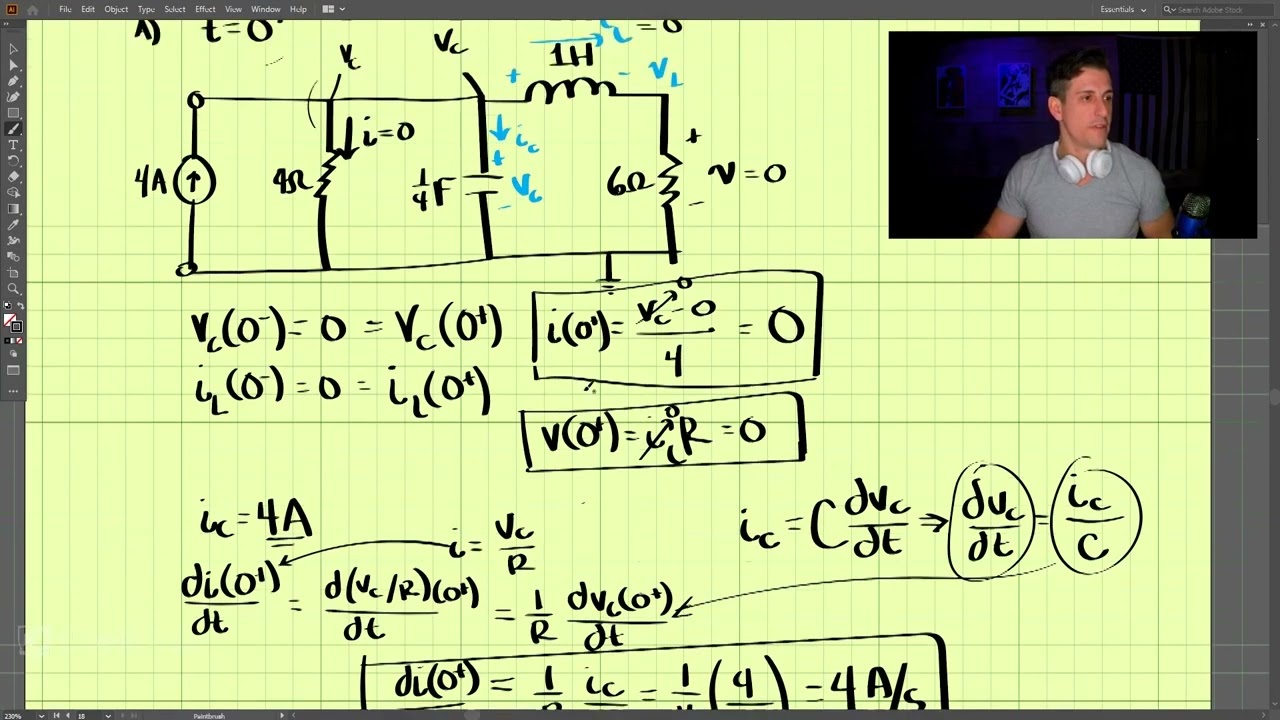 File Edit Object Type Select Effect View Window Help Essentials Search Adobe Stock
A) t=0
= 0
Vc Vc 1H + - VL
i=0 ic +
4A 4Ω 1/4F + Vc - 6Ω v=0 -
Vc(0⁻) = 0 = Vc(0⁺) i(0⁺) = Vc⁰ - 0 / 4 = 0
iL(0⁻) = 0 = iL(0⁺)
V(0⁺) = iL⁰R = 0
ic = 4A i = Vc/R ic = C dvc/dt → dvc/dt = ic/C
di(0⁺)/dt = d(Vc/R)(0⁺)/dt = 1/R dvc(0⁺)/dt
di(0⁺) = 1/R ic = 1/4 (4) = 4 A/s
230% 18 Paintbrush